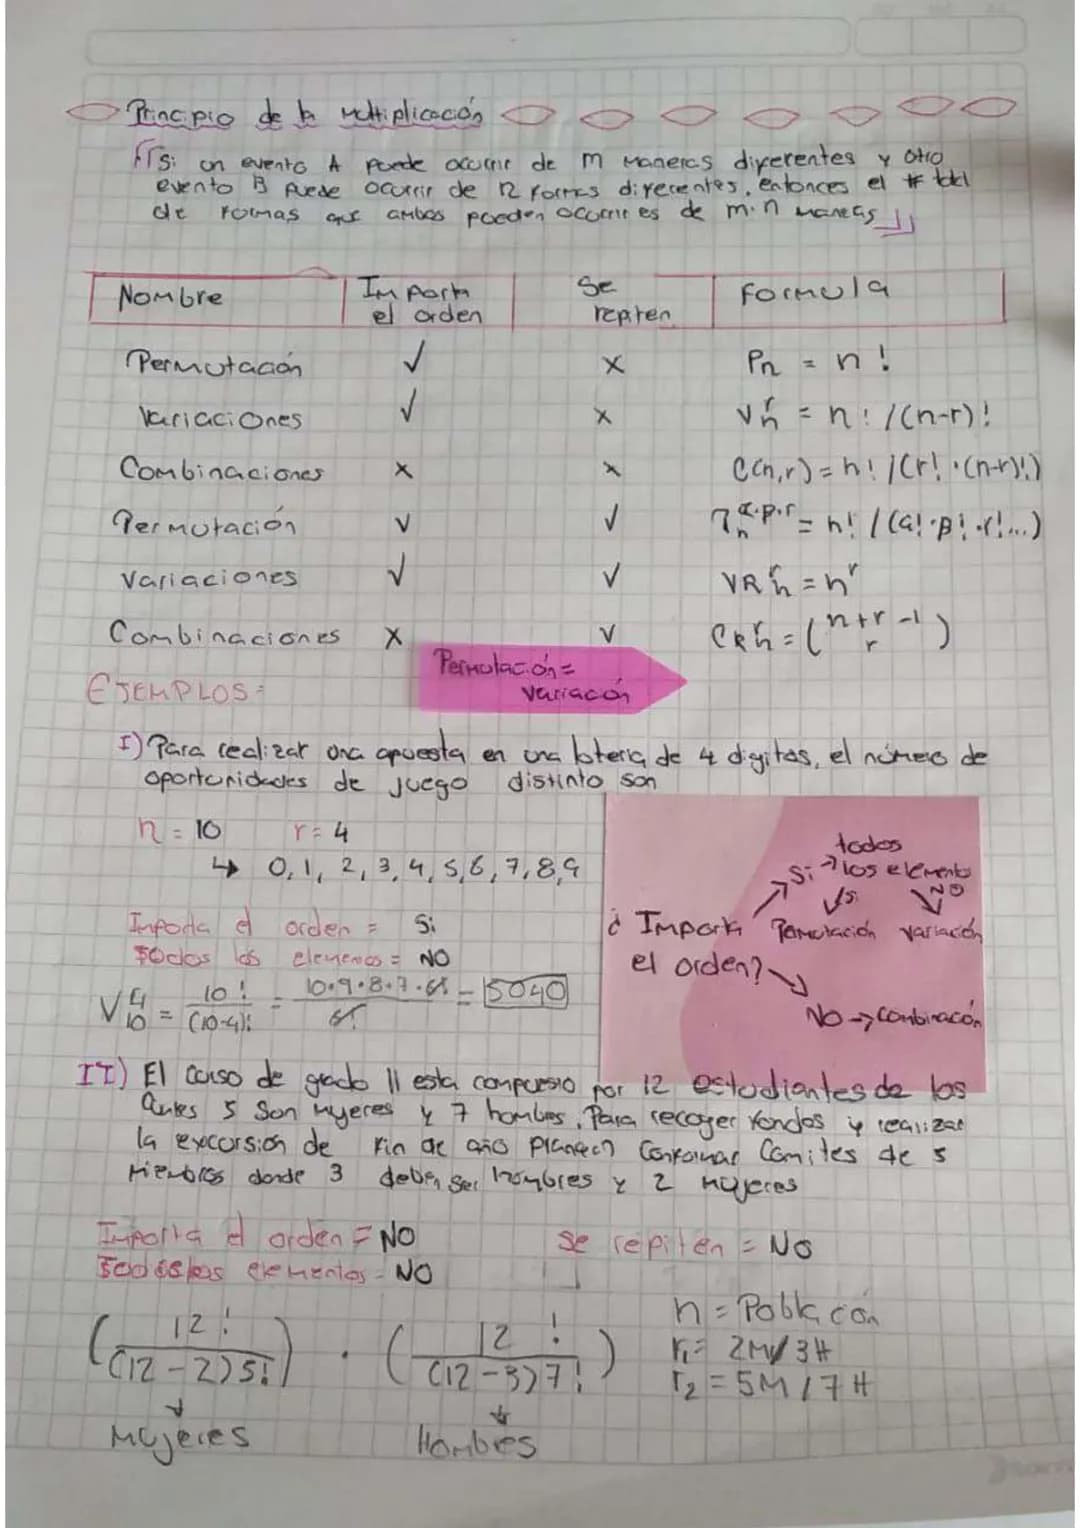 Principio de la Multiplicación
Si un evento A puede ocurrir de m maneras diferentes y otro
evento B puede ocurrir de n formas diferentes, entonces el # total
de formas que ambos pueden ocurrir es de m·n maneras
Nombre Importa el orden Se repiten Formula
Permutación ✓ x Pn = n!
Variaciones ✓ x V^r_n = n! / (n-r)!
Combinaciones x x C(n,r) = n! / (r! · (n-r)!)
Permutación ✓ ✓ P^α·β·r_n = n! / (α! · β! · r!...)
Variaciones ✓ ✓ VR^r_n = n^r
Combinaciones x ✓ CR^r_n = (n+r-1 r)
Permutación =
Variación
EJEMPLOS:
I) Para realizar una apuesta en una loteria de 4 digitos, el número de
oportunidades de juego distinto son
n = 10 r = 4
↳ 0, 1, 2, 3, 4, 5, 6, 7, 8, 9
Importa el orden = Si
todos los elementos = NO
V^4_10 = 10! / (10-4)! = 10·9·8·7·6! / 6! = 5040
todos
Si → los elemento
Si NO
¿ Importa Permutación Variación
el orden?
No → Combinación
II) El curso de grado 11 esta compuesto por 12 estudiantes de los
cuales 5 son mujeres y 7 hombres. Para recoger fondos y realizar
la excursión de fin de año planean conformar Comites de 5
miembros donde 3 deben ser hombres y 2 mujeres
Importa el orden = NO Se repiten = No
Todos los elementos = NO
(12! / (12-2)5!) · (12! / (12-3)7!)
Mujeres Hombres
n = Población
r1 = 2M / 3H
r2 = 5M / 7H